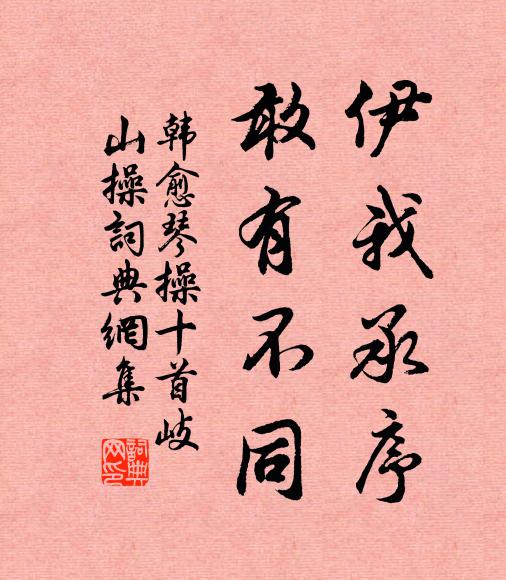 伊我承序
敢有不同
韓愈琴操十首岐
山操詞典網集
詞典網印